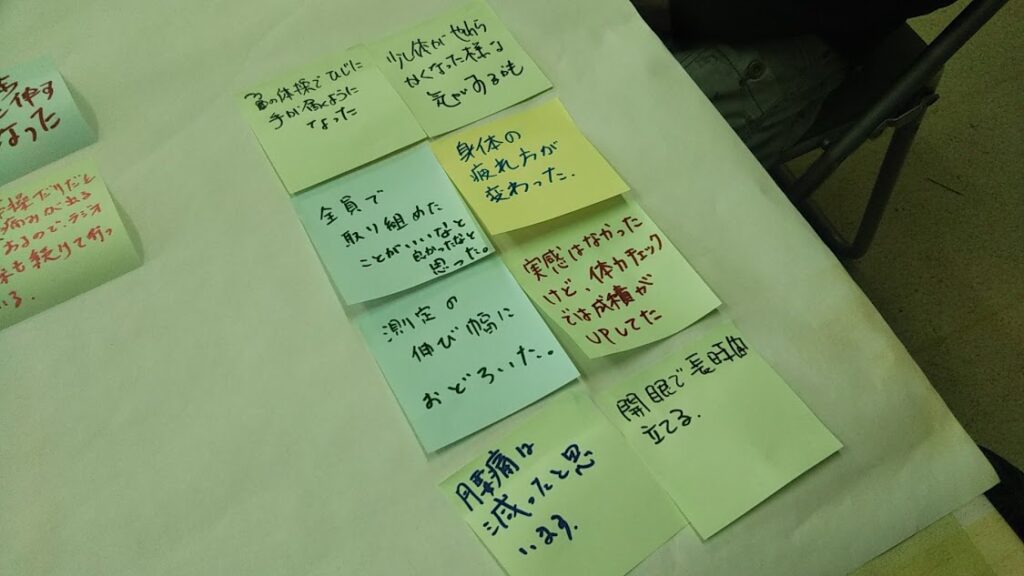 伸す
なった
痛みが出る
あるので、ラジオ
も続けて行っ
いる.
の体操でひじに
手が届くように
なった
少し体がやわら
かくなった様な
気がするも
身体の
疲れ方が
変わった.
全員で
取り組めた
ことがいいなと
良かったなと
思った。
実感はなかった
けど、体力チェック
では成績が
UPしてた
測定の
伸び幅に
おどろいた。
開眼で長時間
立てる.
腰痛は
減ったと思
います.